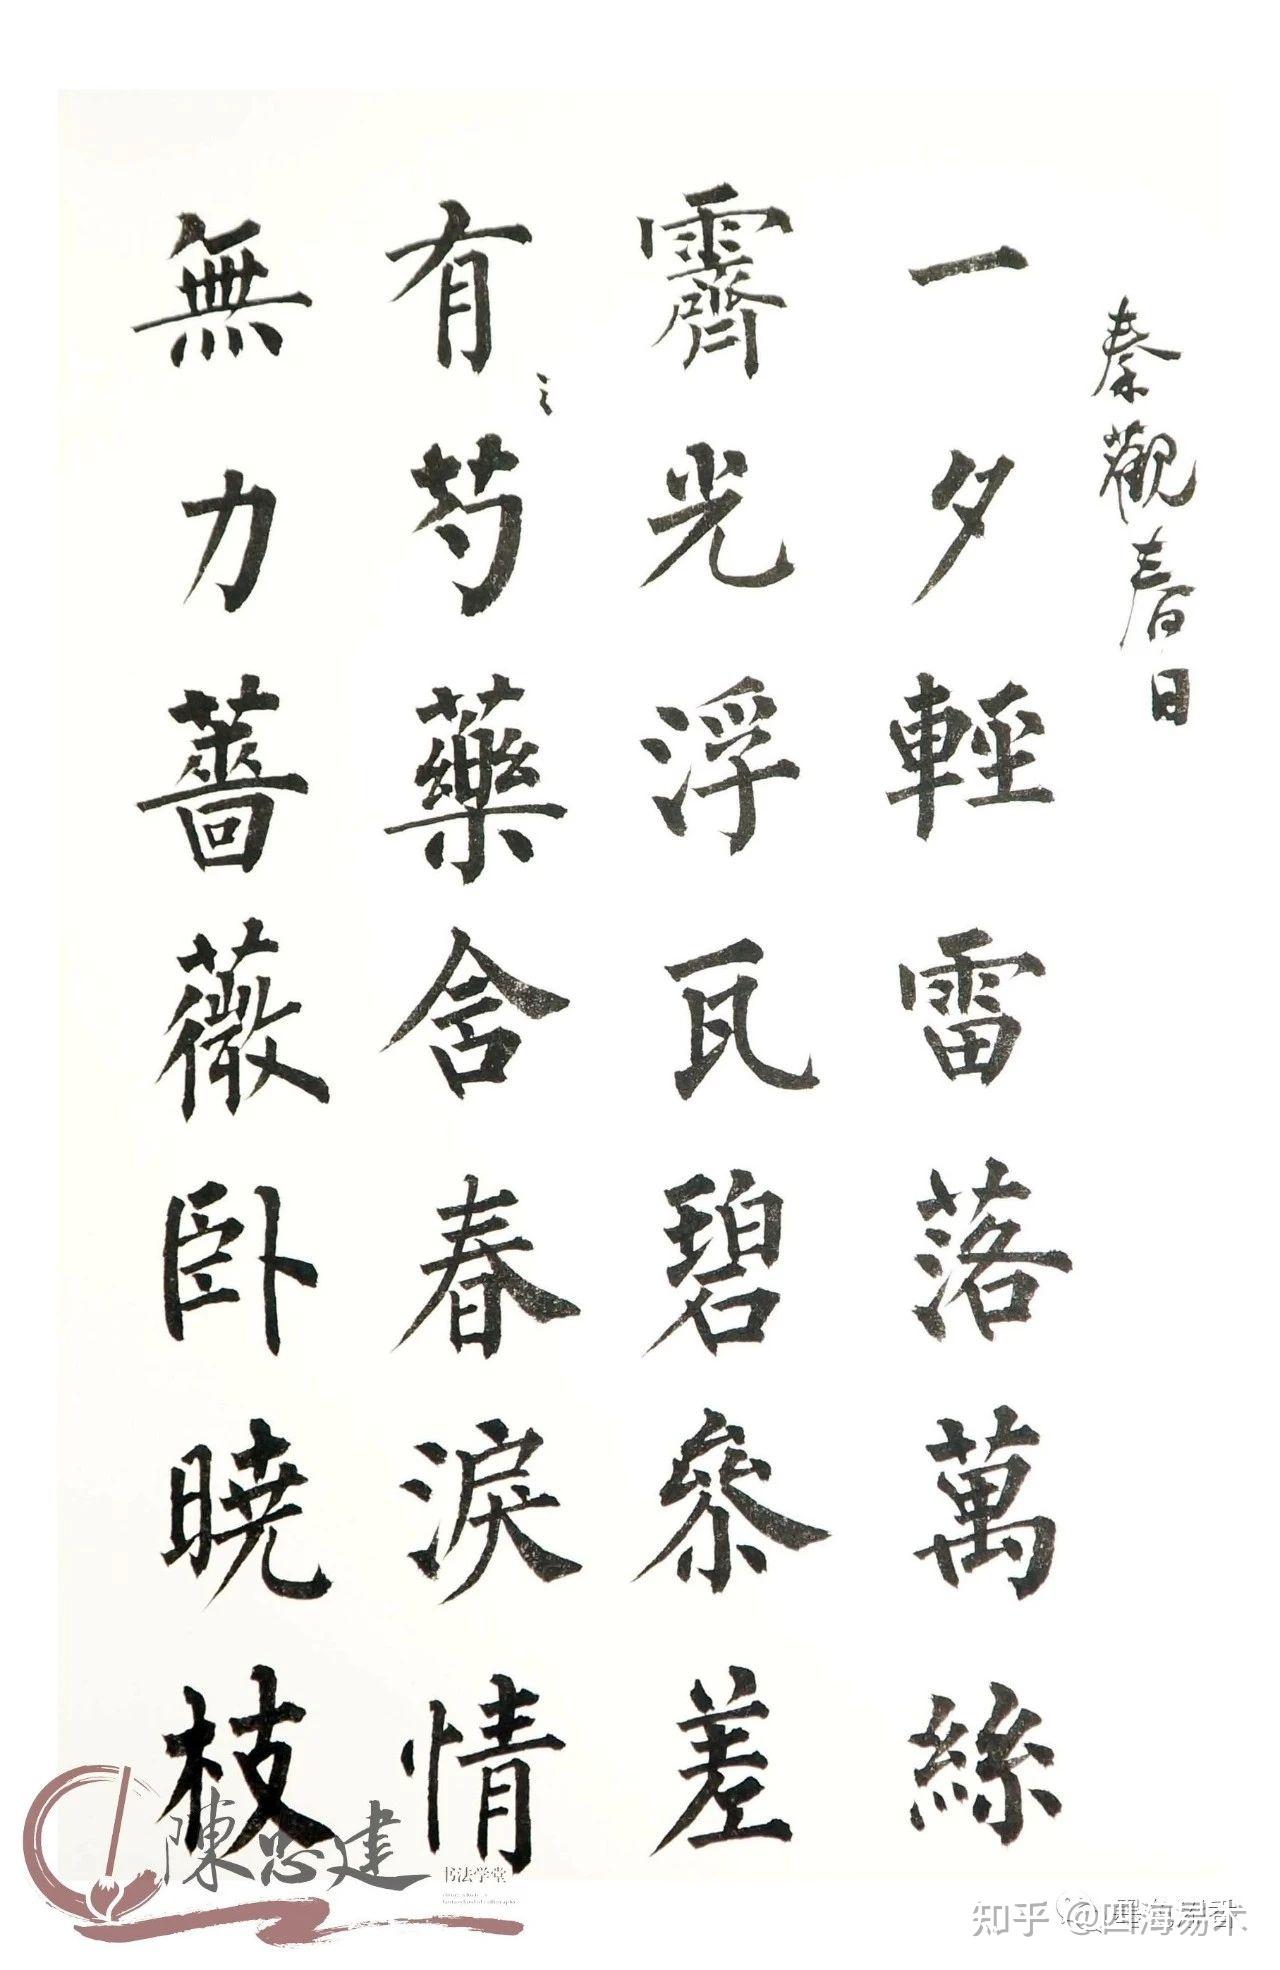 秦觀春日
一夕輕雷落萬絲
霽光浮瓦碧參差
有芍藥含春淚情
無力薔薇卧曉枝
陳忠建
书法学堂
知乎 @四海易